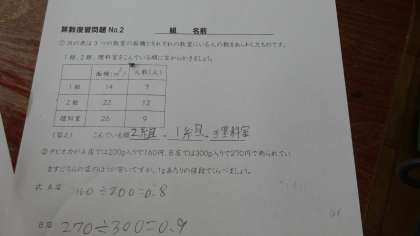 算数復習問題 No.2 組 名前
① 次の表は3つの教室の面積とそれぞれの教室にいる人の数をあらわしたものです。
1組、2組、理科室をこんでいる順に左からかきましょう。
面積(㎡) 人数(人)
1組 14 7
2組 22 12
理科室 26 9
(答え) こんでいる順 2年組 1年組 理科室
② タピオカがA店では200g入りで160円、B店では300g入りで270円で売られてい
ますどちらの店のほうが安いですか。1gあたりの値段でくらべましょう。
式 A店
160÷200=0.8
B店
270÷300=0.9